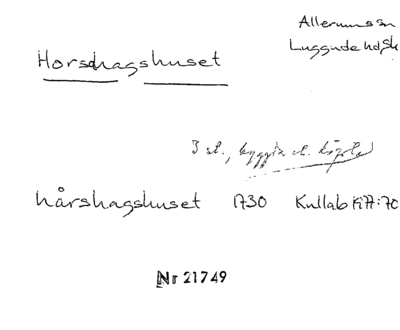 Allerums sn
Luggude hd, Sk
Horshagshuset
3 st., byggda
hårshagshuset 1730 Kullab K77:70
Nr 21749